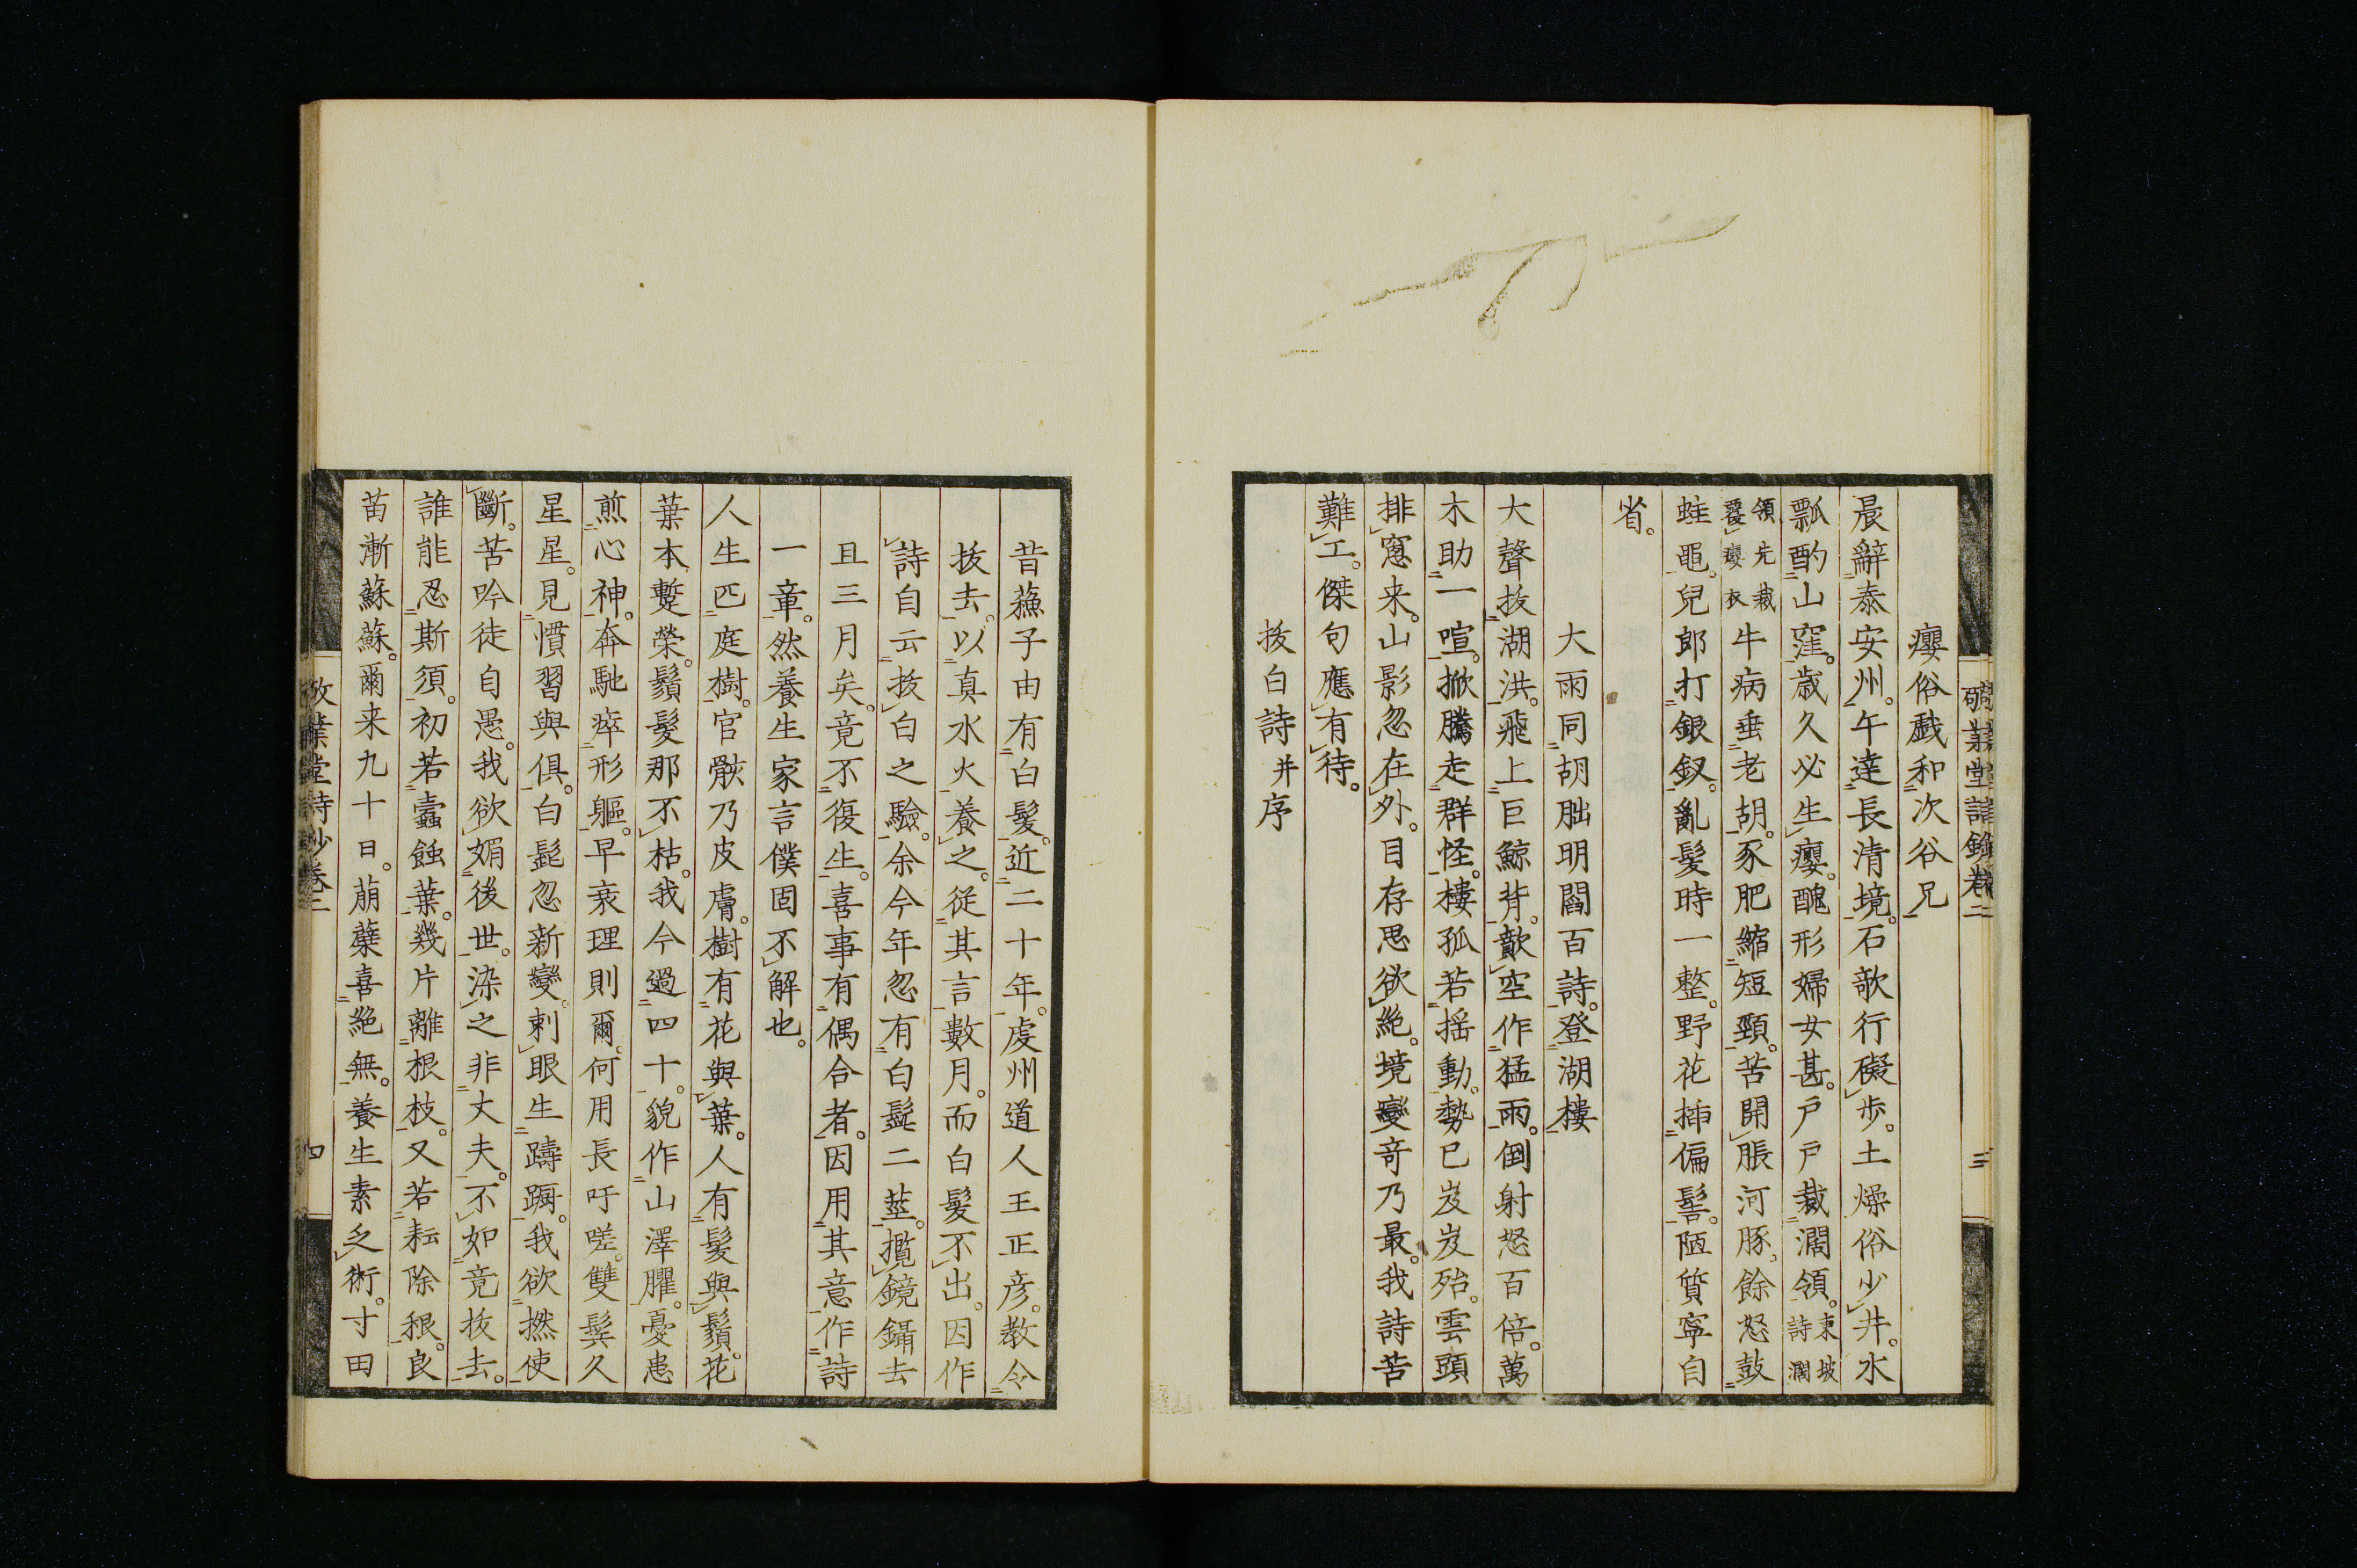 癭俗戲和次谷兄
晨辭泰安州。午達長清境。石欹行礙步。土燥俗少井。水
瓢酌山窪。歲久必生癭。醜形婦女甚。戶戶裁濶領。東坡詩濶
領先裁覆癭衣牛病垂老胡。豕肥縮短頸。苦開脹河豚。餘怒鼓
蛙黽。兒郎打銀釵。亂髮時一整。野花揷偏髻。陋質寧自
省。
大雨同胡朏明閻百詩。登湖樓
大聲拔湖洪。飛上巨鯨背。歕空作猛雨。倒射怒百倍。萬
木助一喧。掀騰走群怪。樓孤若搖動。勢已岌岌殆。雲頭
排窻来。山影忽在外。目存思欲絕。境變竒乃最。我詩苦
難工。傑句應有待。
拔白詩并序
昔蘓子由有白髮。近二十年。虔州道人王正彥。教令
拔去。以真水火養之。從其言數月。而白髮不出。因作
詩自云拔白之驗。余今年忽有白髭二莖。攬鏡鑷去
且三月矣。竟不復生。喜事有偶合者。因用其意作詩
一章。然養生家言僕固不解也。
人生匹庭樹。官骸乃皮膚。樹有花與葉。人有髮與鬚。花
葉本蹔榮。鬚髮那不枯。我今過四十。貌作山澤臞。憂患
煎心神。奔馳瘁形軀。早衰理則爾。何用長吁嗟。雙鬓久
星星。見慣習與俱。白髭忽新變。刺眼生躊躕。我欲撚使
斷。苦吟徒自愚。我欲媚後世。染之非丈夫。不如竟拔去。
誰能忍斯須。初若蠹蝕葉。幾片離根枝。又若耘除稂。良
苗漸蘇蘇。爾来九十日。萠蘖喜絕無。養生素乏術。寸田
敬業堂詩鈔卷二
三
敬業堂詩鈔卷二
四